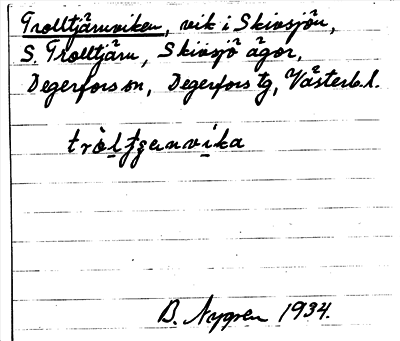 Trolltjärnviken, vik i Skivsjön,
S. Trolltjärn, Skivsjö ägor,
Degerfors sn, Degerfors tg, Västerb. l.
tròltjenvika
B. Nygren 1934.